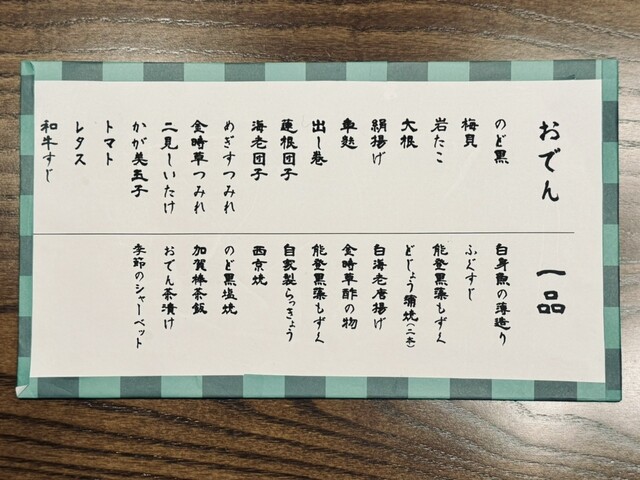 おでん
のど黒
梅貝
岩たこ
大根
絹揚げ
車麩
出し巻
蓮根団子
海老団子
めぎすつみれ
金時草つみれ
二見しいたけ
かが美玉子
トマト
レタス
和牛すじ
一品
白身魚の薄造り
ふぐすじ
能登黒藻もずく
どじょう蒲焼(二本)
白海老唐揚げ
金時草酢の物
能登黒藻もずく
自家製らっきょう
西京焼
のど黒塩焼
加賀棒茶飯
おでん茶漬け
季節のシャーベット